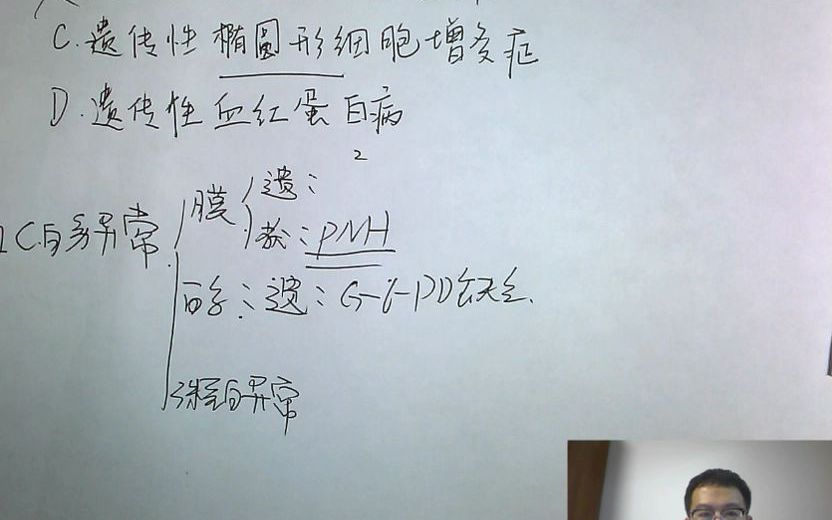 C.遗传性椭圆形细胞增多症
D.遗传性血红蛋白病
2
膜 遗:
C自身异常 获:PNH
酶:遗:G-6-PD缺乏.
珠蛋白异常